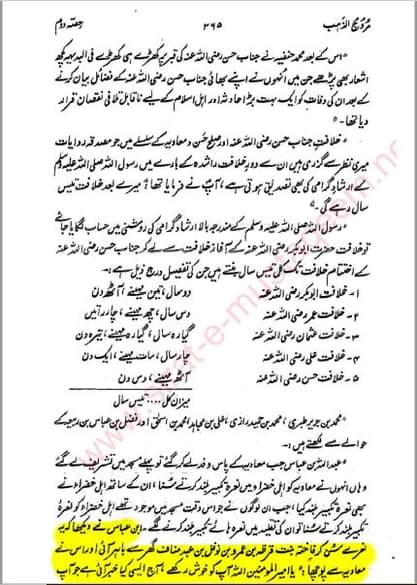 مروج الذہب ۳۶۵ حصہ دوم
"اس کے بعد محمد حنفیہ نے جناب حسن رضی اللہ عنہ کی قبر پر کھڑے ہی کھڑے فی البدیہہ کچھ
اشعار بھی پڑھے جن میں انہوں نے اپنے بھائی جناب حسن رضی اللہ عنہ کے فضائل بیان کرنے
کے بعد ان کی وفات کو ایک بہت بڑا حادثہ اور اہل اسلام کے لیے ناقابل تلافی نقصان قرار
دیا تھا۔"
"خلافت جناب حسن رضی اللہ عنہ اور صلح حسن و معاویہ کے سلسلے میں جو مصدقہ روایات
میری نظر سے گزری ہیں ان سے دور خلافت راشدہ کے بارے میں رسول اللہ صلی اللہ علیہ وسلم
کے ارشاد گرامی کی بھی تصدیق ہوتی ہے، آپ نے فرمایا تھا: میرے بعد خلافت تیس
سال رہے گی۔"
"رسول اللہ صلی اللہ علیہ وسلم کے مندرجہ بالا ارشاد گرامی کی روشنی میں حساب لگایا جائے
تو خلافت حضرت ابوبکر رضی اللہ عنہ کے آغاز خلافت سے لے کر جناب حسن رضی اللہ عنہ
کے اختتام خلافت تک کل تیس سال بنتے ہیں جن کی تفصیل درج ذیل ہے:۔
۱۔ خلافت ابوبکر رضی اللہ عنہ دو سال، تین مہینے، آٹھ دن
۲۔ خلافت عمر رضی اللہ عنہ دس سال، چھ مہینے، چار راتیں
۳۔ خلافت عثمان رضی اللہ عنہ گیارہ سال، گیارہ مہینے، تیرہ دن
۴۔ خلافت علی رضی اللہ عنہ چار سال، سات مہینے، ایک دن
۵۔ خلافت حسن رضی اللہ عنہ آٹھ مہینے، دس دن
میزان کل .... تیس سال
"محمد بن جریر طبری، محمد بن حمید رازی، علی بن مجاہد، محمد بن اسحٰق اور فضل بن عباس بن ربیعہ کے
حوالے سے لکھتے ہیں:۔
"عبداللہ بن عباس جب معاویہ کے پاس وفد لے کر گئے تو پہلے مسجد میں تشریف لے گئے
وہاں انہوں نے معاویہ کو اہل خضراء میں نعرہ تکبیر بلند کرتے سنا، ان کے ساتھ اہل خضراء نے
تکبیر بلند کی، جب ان لوگوں نے جو اس وقت مسجد میں موجود تھے اہل خضراء کو نعرۂ
تکبیر بلند کرتے سنا تو ان کی تقلید میں نعرہ ہائے تکبیر بلند کرنے لگے۔ ابن عباس نے دیکھا کہ یہ
نعرے سن کر فاختہ بنت قرظہ بن عمرو بن نوفل بن عبد مناف گھر سے باہر آئی اور اس نے
معاویہ سے پوچھا: "یا امیر المومنین اللہ آپ کو خوش رکھے، آج ایسی کیا خبر آئی ہے جو آپ